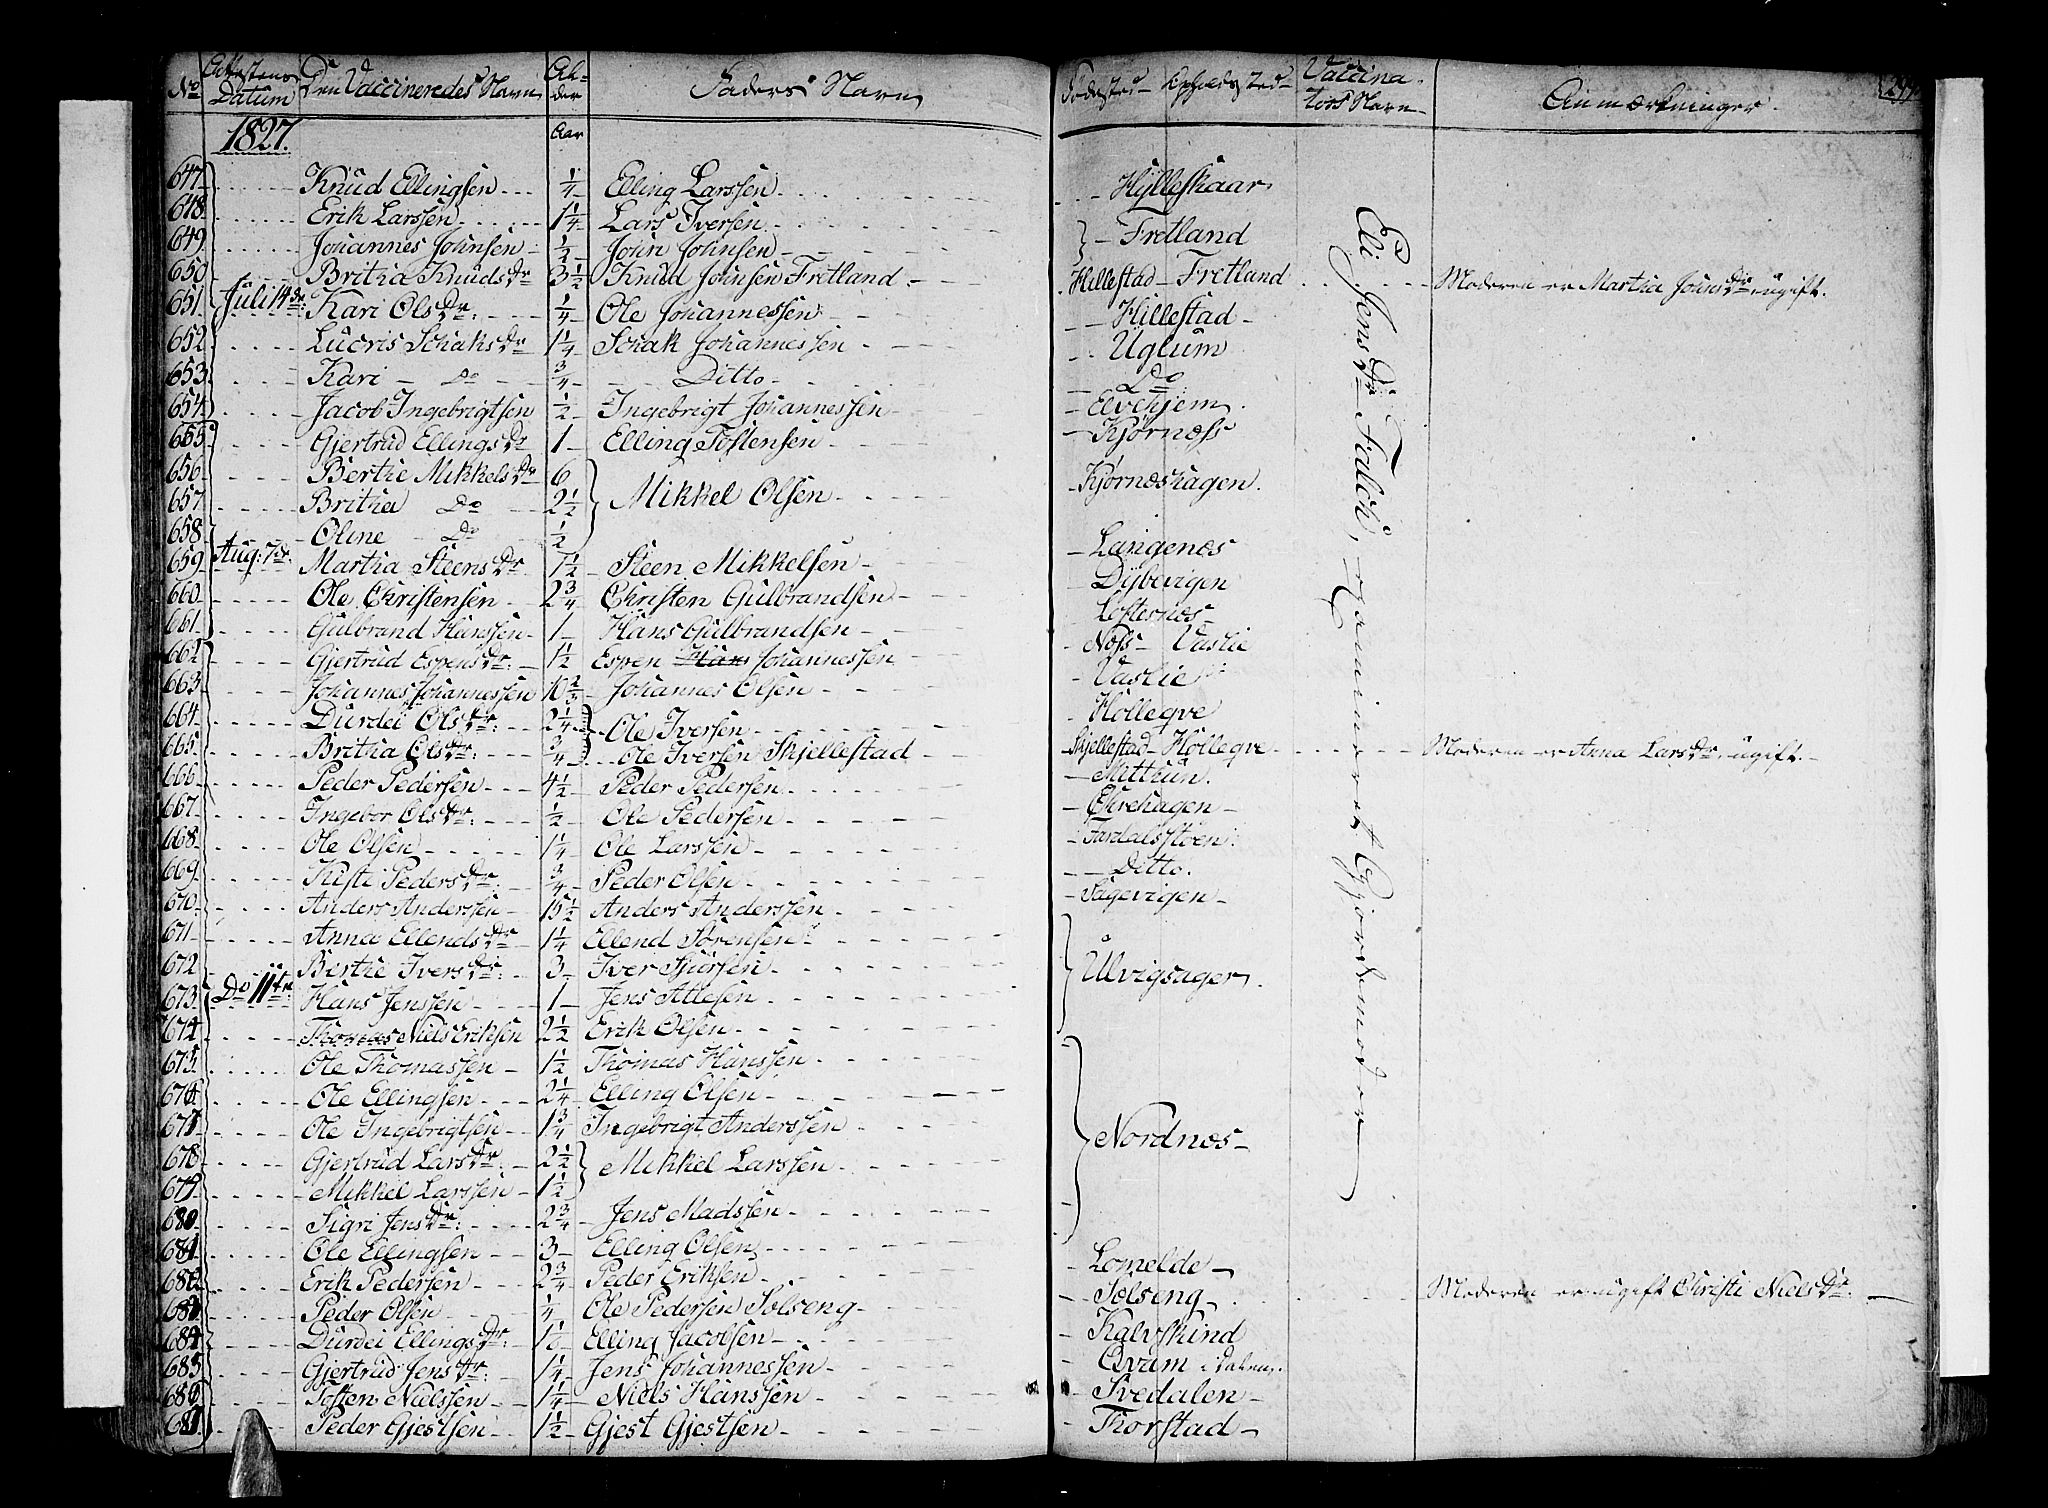 No Attestens Datum Den Vaccineredes Navn Alder Faders Navn Fødested Opholdsted Vaccinators Navn Anmærkninger
1827. Aar
647 Knud Ellingsen 1/4 Elling Larssen Hylleskaar
648 Erik Larssen 1 1/4 Lars Iversen
649 Johannes Johnsen 1/2 John Johnsen Fretland
650 Britha Knudsdr 3 1/2 Knud Johnsen Fretland Hillestad Fretland Moderen er Martha Johnsdr ugift.
651 Juli 14de Kari Olsdr 1/4 Ole Johannessen Hillestad
652 Lucris Schaksdr 1 1/4 Schak Johannessen Uglum
653 Kari Do 3/4 Ditto Do
654 Jacob Ingebrigtsen 1/2 Ingebrigt Johannessen Elvekjem
655 Gjertrud Ellingsdr 1 Elling Tostensen Kjørnæss
656 Berthe Mikkelsdr 6 Mikkel Olsen Kjørneshagen.
657 Britha Do 2 1/2
658 Oline Do 1/2
659 Aug: 7de Martha Steensdr 1 1/2 Steen Mikkelsen Langenæs
660 Ole Christensen 2 3/4 Christen Gulbrandsen Dybevigen
661 Gulbrand Hanssen 1 Hans Gulbrandsen Loftesnæs
662 Gjertrud Espensdr: 1 1/2 Espen Hans Johannessen Noss Vaslie
663 Johannes Johannessen 10 2/3 Johannes Olsen Vaslie
664 Durdei Olsdr: 2 1/4 Ole Iversen Holleqve
665 Britha Olsdr: 3/4 Ole Iversen Skjellestad Skjellestad Holleqve Moderen er Anna Larsdr ugift.
666 Peder Pedersen 4 1/2 Peder Pedersen Mittun.
667 Ingebor Olsdr: 1/2 Ole Pedersen Ehrehagen
668 Ole Olsen 1 1/4 Ole Larssen Fardalsstøen
669 Kisti Pedersdr 3/4 Peder Olsen Ditto.
670 Anders Anderssen 15 1/2 Anders Anderssen Sagevigen
671 Anna Ellendsdr 1 1/4 Ellend Sørensen
672 Berthe Iversdr: 3 Iver Sjursen Ulvigsager.
673 Do 11te: Hans Jenssen 1 Jens Atlesen
674 Thomas Niels Eriksen 2 1/2 Erik Olsen
675 Ole Thomassen 1 1/2 Thomas Hanssen
676 Ole Ellingsen 2 1/4 Elling Olsen
677 Ole Ingebrigtsen 1 3/4 Ingebrigt Anderssen Nordnæs
678 Gjertrud Larsdr 2 1/2 Mikkel Larssen
679 Mikkel Larssen 1 1/2
680 Sigri Jensdr: 2 3/4 Jens Madssen
681 Ole Ellingsen 3 Elling Olsen Lomelde
682 Erik Pedersen 2 3/4 Peder Eriksen Solseng
683 Peder Olsen 1/4 Ole Pedersen Solseng Moderen er ugift Christi Nielsdr:
684 Durdei Ellingsdr: Elling Jacobsen Kalvskind
685 Gjertrud Jensdr: 1 1/4 Jens Johannessen Qvam i Dalen.
686 Tosten Nielssen 1 1/4 Niels Hanssen Svedalen
687 Peder Gjestsen 1 1/2 Gjest Gjestsen Thorstad
Eli Jensdr Falch, examineret Gjordemoder